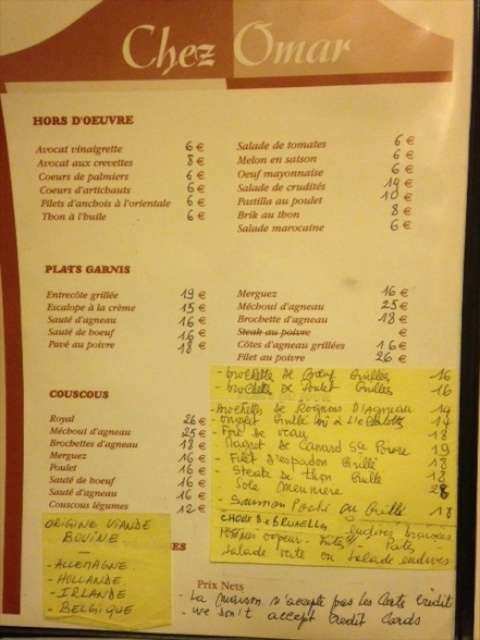 Chez Omar
HORS D'OEUVRE
Avocat vinaigrette 6 €
Avocat aux crevettes 8 €
Coeurs de palmiers 6 €
Coeurs d'artichauts 6 €
Filets d'anchois à l'orientale 6 €
Thon à l'huile 6 €
Salade de tomates 6 €
Melon en saison 6 €
Oeuf mayonnaise 6 €
Salade de crudités €
Pastilla au poulet 10 €
Brik au thon 8 €
Salade marocaine 6 €
PLATS GARNIS
Entrecôte grillée 19 €
Escalope à la crème 15 €
Sauté d'agneau 16 €
Sauté de boeuf 16 €
Pavé au poivre 18 €
Merguez 16 €
Méchoui d'agneau 25 €
Brochette d'agneau 18 €
Steak au poivre €
Côtes d'agneau grillées 16 €
Filet au poivre 26 €
COUSCOUS
Royal 26 €
Méchoui d'agneau 25 €
Brochettes d'agneau 18 €
Merguez 16 €
Poulet 16 €
Sauté de boeuf 16 €
Sauté d'agneau 16 €
Couscous légumes 12 €
- brochette de Boeuf Grillés 16
- brochette de Poulet Grillés 16
- brochettes de Rognons D'Agneau 14
- onglet Grillé ou à l'echalotte
- Foie de veau 18
- Magret de Canard Sce Poivre 19
- Filet d'espadon Grillé 18
- Steak de thon Grillé 18
Sole meunière 28
- Saumon Poché ou Grillé 18
CHOUX De BRUXELLES Endives braisées
vapeur - Frites - Pates -
Salade verte ou Salade endives
ORIGINE VIANDE
BOVINE
- ALLEMAGNE
- HOLLANDE
- IRLANDE
- BELGIQUE
ES
Prix Nets
- La maison n'accepte pas les Carte crédit
- we don't accept credit cards